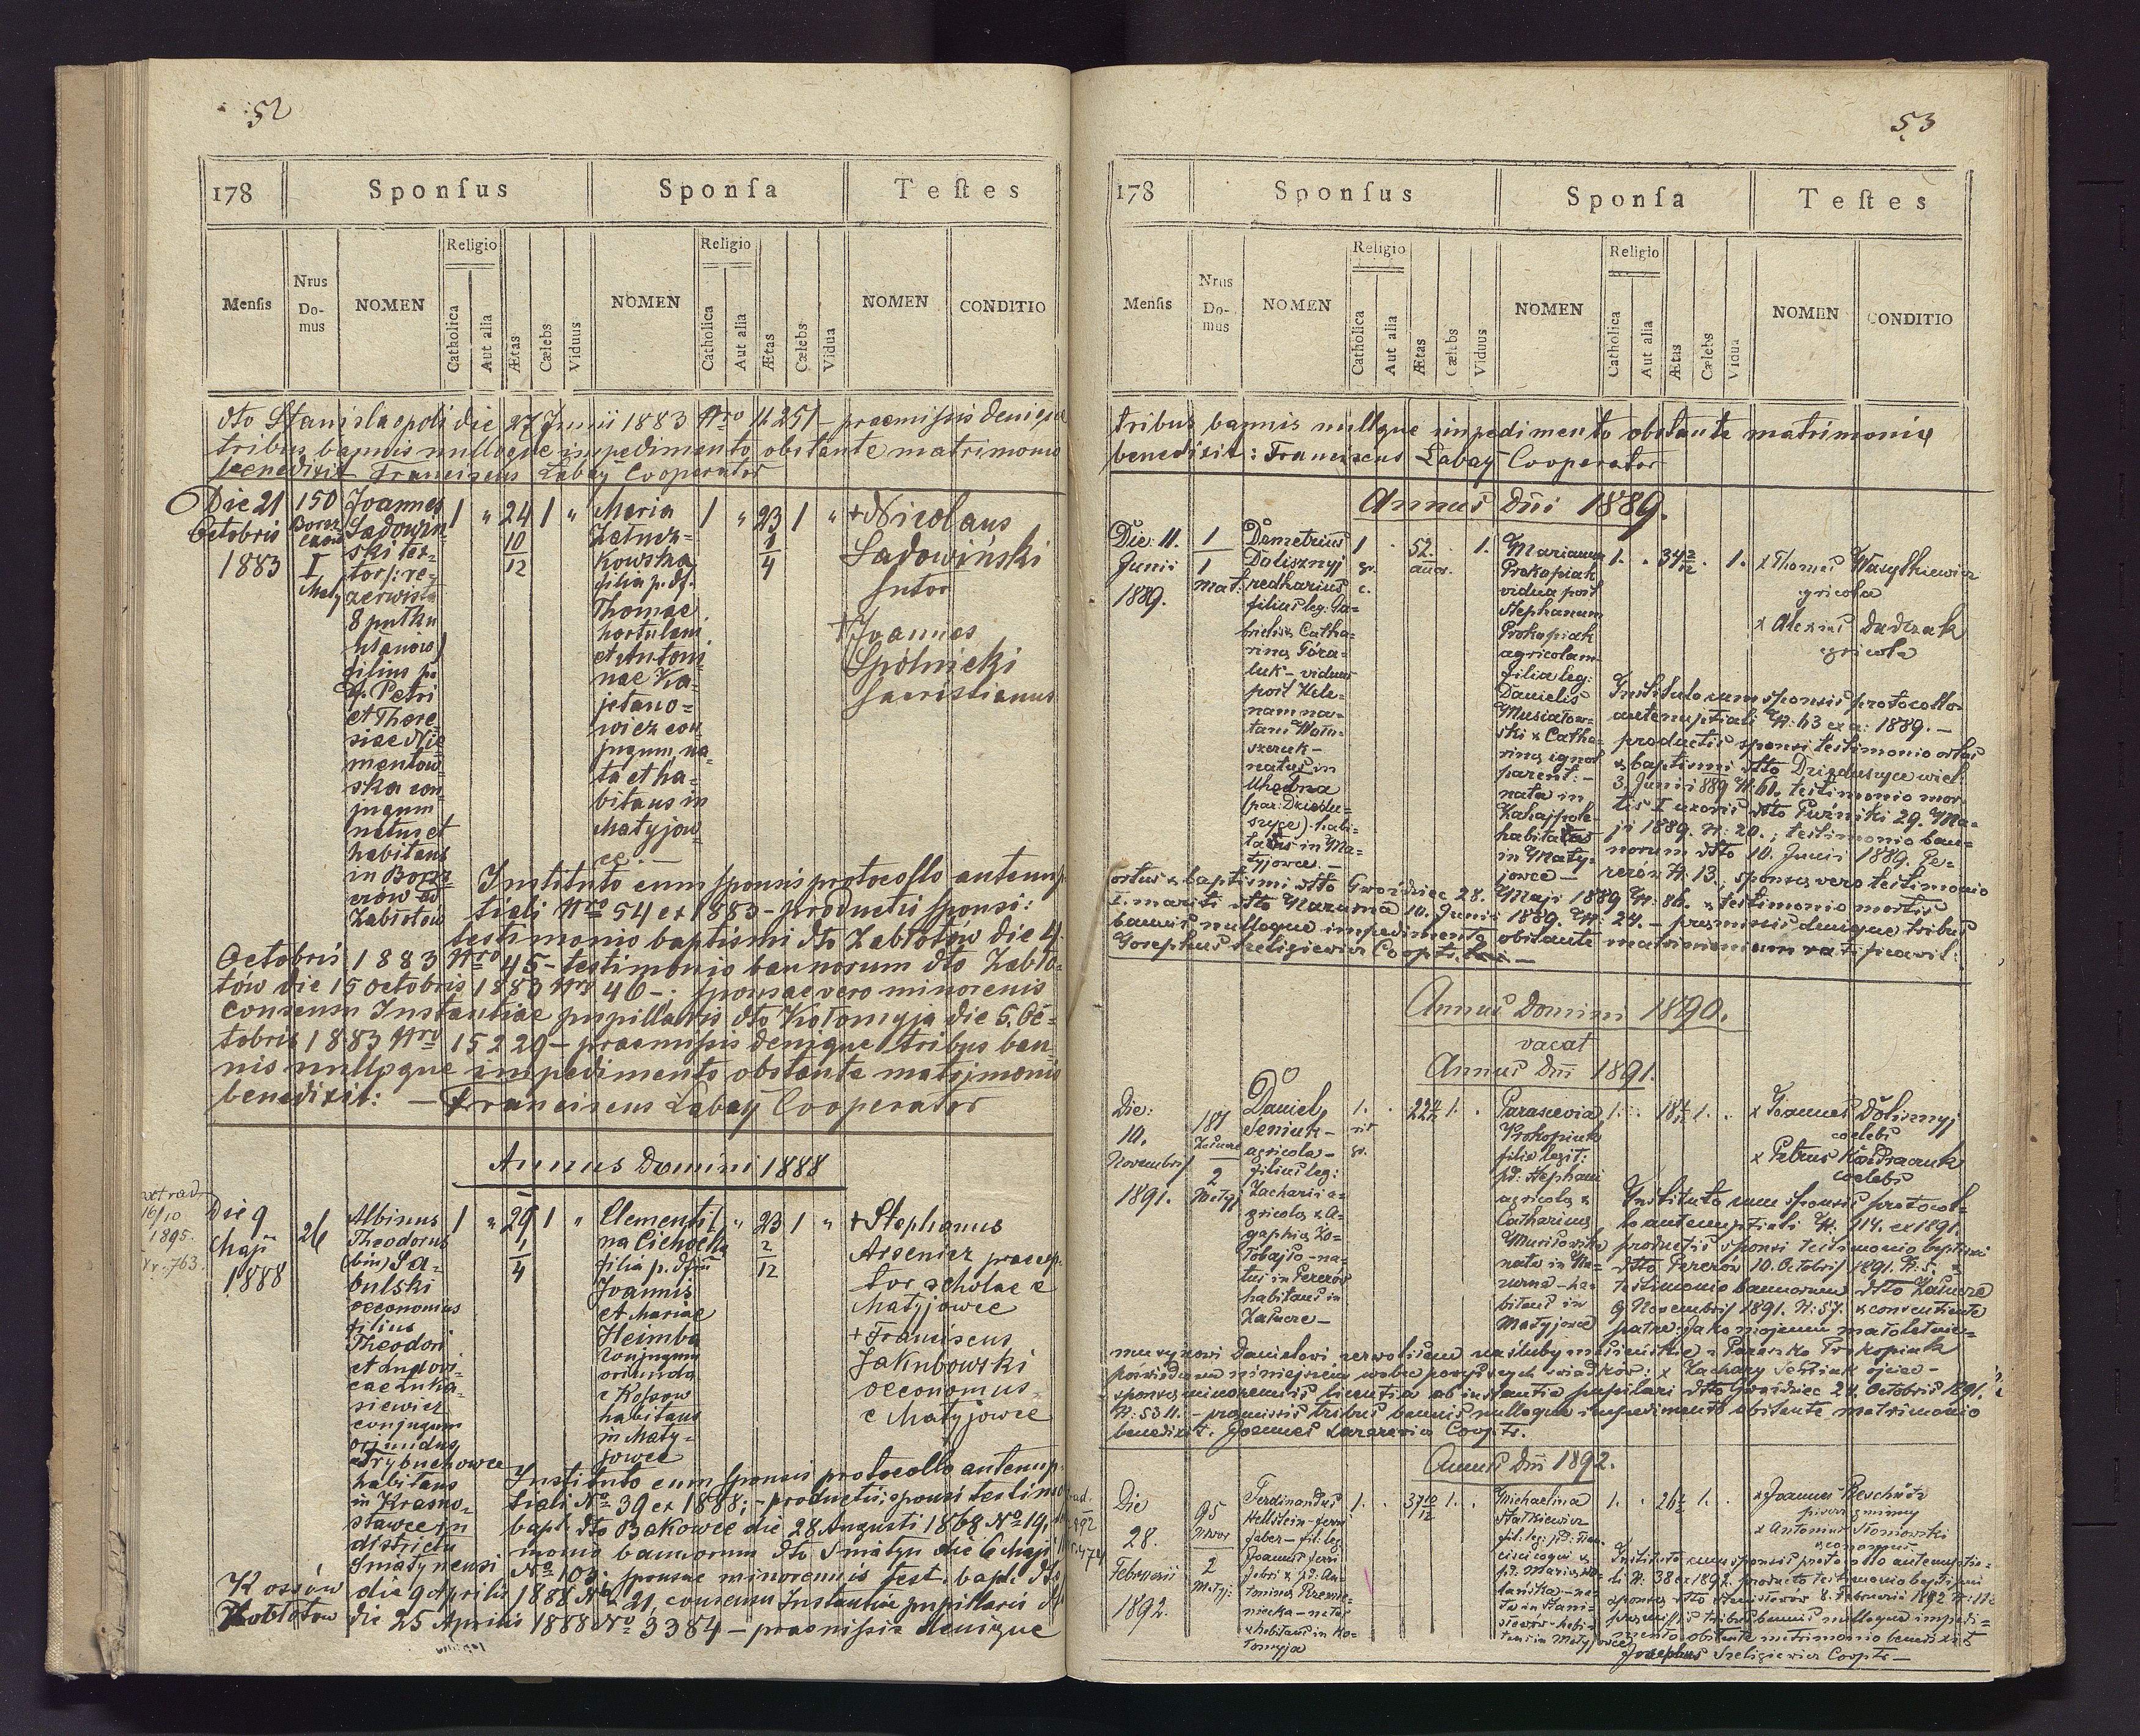 52
178 Sponſus Sponſa Teſtes
Menſis Nrus Do-mus NOMEN Religio Catholica Aut alia Ætas Cælebs Viduus NOMEN Religio Catholica Aut alia Ætas Cælebs Vidua NOMEN CONDITIO
dto Stanislaopoli die 27 Junii 1883 Nro 11251 – praemissis denique
tribus bannis nulloque impedimento obstante matrimonio
benedixit Franciscus Łabaÿ Cooperator
Die 21
Octobris
1883
150
I
Joannes
Sadowin
ski
8 pułku
ułanów)
filius p.
d. Petri
et There
siae Nie
mentow
ska con
jugum
natus et
habitans
in
Zabłotow
1 " 24 1 "
10
12
Maria
kowska
filia p. df.
Thomae
hortulani
et Anton
nae Ka-
jetano=
wicz con
jugum, na
ta et ha=
bitans in
Matyjow
ce. —
1 " 23 1 "
4
+Nicolaus
Sadowiński
sutor
+Joannes
Spólnicki
sacristianus
Instituto cum sponsis protocollo antenup
tiali Nro 54 ex 1883 – productis sponsi:
testimonio baptismi dto Zabłotów die 4.
Octobris 1883 Nro 45 – testimonio bannorum dto Zabło=
tów die 15 Octobris 1883 Nro 46 – sponsae vero minorenis
consensu Instantiae pupillaris dto Kołomyja die 5. Oc=
tobris 1883 Nro 15220 – praemissis denique tribus ban
nis nulloque impedimento obstante matrimonio
benedixit: — Franciscus Łabaÿ Cooperator
Annus Domini 1888
16/10
1895.
763.
Die 9
Maji
1888
26
Albinus
Theodorus
(bin) Sa-
bulski
oeconomus
filius
Theodori
et Ludovi
cae Łuka-
siewicz
conjugum
oriundus
Trybuchowce
habitans
in Krasno-
stawce in
districtu
Śniatynensi
1 " 29 1 "
1
4
Clementi
na Cichocka
filia p.
Joannis
et Mariae
Heimba
conjugum
oriunda
e Kossow
habitans
in Maty-
jowce
" 23 1 "
2
12
+Stephanus
Arsenicz praecep
tor scholae e
Matyjowce
+Franciscus
Jakubowski
oeconomus
e Matyjowce
Instituto cum sponsis protocollo antenup-
tiali No 39 ex 1888; – productis; sponsi testimo
bapt. dto Bakowce die 28 Augusti 1868 No 19,
monio bannorum dto Śniatyn die 6 Maji
No 103; sponsae minorennis test. bapt. dto
Kossów die 9 Aprilis 1888 No 21, consensu Instantiae pupillaris dto
Zabłotow die 25 Aprilis 1888 No 3384 – praemissis denique
53
178 Sponſus Sponſa Teſtes
Menſis Nrus Do-mus NOMEN Religio Catholica Aut alia Ætas Cælebs Viduus NOMEN Religio Catholica Aut alia Ætas Cælebs Vidua NOMEN CONDITIO
tribus bannis nulloque impedimento obstante matrimonio
benedixit: Franciscus Łabaÿ Cooperator
Annus Dni 1889.
Die 11.
Junii
1889.
1
1
mat:
Demetrius
Dolisznyj
filius leg: Ga=
brielis & Catha=
rina Góra=
luk – viduus
post Hele=
nam na=
tam Woło=
szczuk –
natus in
Uhodna
(par: Dziedu=
szyce) habi=
tans in Ma=
tyjowce. —
1 . 52. . 1.
gr. c.
Marianna
Prokopiak
vidua post
Stephanum
Prokopiak
agricolam
filia leg:
Danielis
Musiałow=
ski & Catha=
rina ignot
parent: –
nata in
habitans
in Maty-
jowce –
1. . 34 . 1.
x Thomas Wasylkiewicz
agricola
x Alexius Dudczak
agricola
Instituto cum sponsis protocollo
antenuptiali N: 63 ex a: 1889. –
productis sponsi testimonio ortus
& baptismi dtto Dzieduszyce wiel:
3. Junii 1889 N: 61. testimonio mor
tis I uxoris dtto Puźniki 29. Ma=
ji 1889. N: 20.; testimonio ban=
norum dtto 10. Junii 1889. Pe=
rerów N: 13., sponsa vero testimonio
ortus & baptismi dtto Gwoździec 28. Maji 1889 N: 86. & testimonio mortis
I. mariti dtto Nazurna 10. Junii 1889. N: 24. – praemissis denique tribus
bannis nulloque impedimento obstante matrimonium ratificavit:
Josephus Szeligiewicz Cooptr. —
Annus Domini 1890.
vacat
Annus Dni 1891.
Die:
10.
Novembris
1891.
181
Załucze
2
Matyj
Daniel
Seniuk –
agricola –
filius leg:
Zacharia a=
gricola & A=
gaphia Ko=
tobajło – na=
tus in Pererów
habitans in
Załucze –
1. . 22 1. .
rit.
gr.
Parascevia
Prokopiak
filia legit:
pd: Stephani
agricola &
Catharina
nata in Na=
zurna – ha=
bitans in
Matyjowce
1. . 18 1. .
x Joannes Dolisznyj
coelebs
x Petrus
coelebs
Instituto cum sponsis protocol=
lo antenuptiali N: 114. ex 1891.
productis sponsi testimonio baptismi
dtto Pererów 10. Octobris 1891. N: 5. &
testimonio bannorum dtto Załucze
9 Novembris 1891. N: 57. & consentiente
patre: Jako mojemu małoletnie=
mu synowi Danielowi zezwoliłem na śluby małżeńskie z Paraską Prokopiak
poświadczam niniejszem wobec powyższych świadków: x Zachary Seniuk ojciec –
sponsa minorennis licentia ab instantia pupilari dtto Gwoździec 24. Octobris 1891.
N: 5311. – praemissis tribus bannis nulloque impedimento obstante matrimonio
benedixit. Joannes Łazarewicz Cooptr.
Annus Dni 1892.
Die
28.
Februarii
1892.
95
2
Matyj:
Ferdinandus
Hellstein – ferri
faber – fil. leg.
Joannis ferri
fabri & pd: An=
tonina
– natus
& habitans in Ko=
łomyja
1. . 37 10/12 1. .
Michaelina
Statkiewicz
fil: leg: pd: Fran=
cisci coqui &
pd: Maria
1. . 26 1. .
x Joannes
pisarz gminny
x Antonius Słomowski
oeconomus
Instituto cum sponsis protocollo antenuptia=
li N: 38 ex 1892. producto testimonio baptismi
sponsa dtto Stanisławów 8. Februarii 1892 N: 112
praemissis tribus bannis nulloque impedi=
mento obstante matrimonio benedixit
Josephus Szeligiewicz Cooptr —